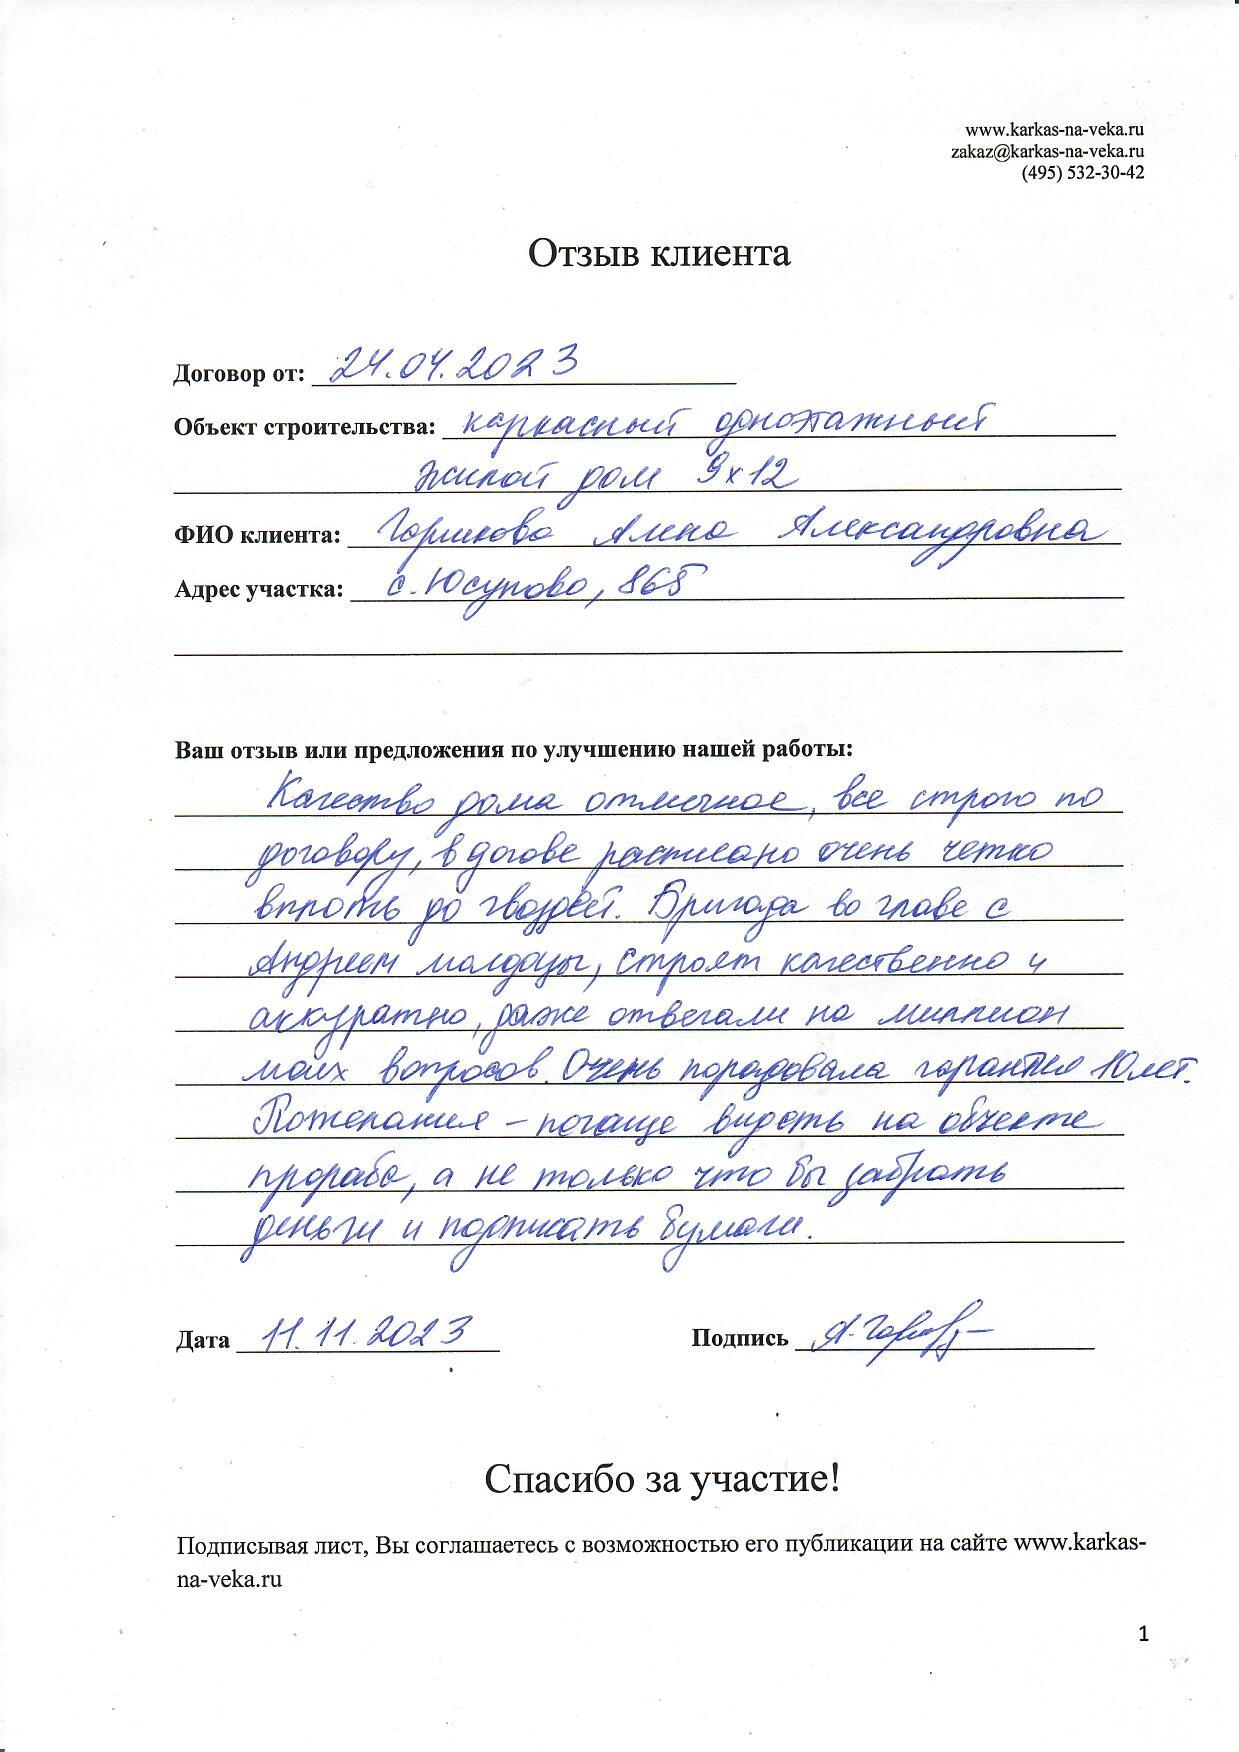 www.karkas-na-veka.ru
zakaz@karkas-na-veka.ru
(495) 532-30-42
Отзыв клиента
Договор от: 24.04.2023
Объект строительства: каркасный одноэтажный
жилой дом 9х12
ФИО клиента: Горшкова Алина Александровна
Адрес участка: с. Юсупово, 86Б
Ваш отзыв или предложения по улучшению нашей работы:
Качество дома отличное, все строго по
договору, в догове расписано очень четко
вплоть до гвоздей. Бригада во главе с
Андреем молодцы, строят качественно и
аккуратно, даже отвечали на миллион
моих вопросов. Очень порадовала гарантия 10 лет.
Пожелания - почаще видеть на объекте
прораба, а не только что бы забрать
деньги и подписать бумаги.
Дата 11.11.2023 Подпись А. Горшк
Спасибо за участие!
Подписывая лист, Вы соглашаетесь с возможностью его публикации на сайте www.karkas-
na-veka.ru
1